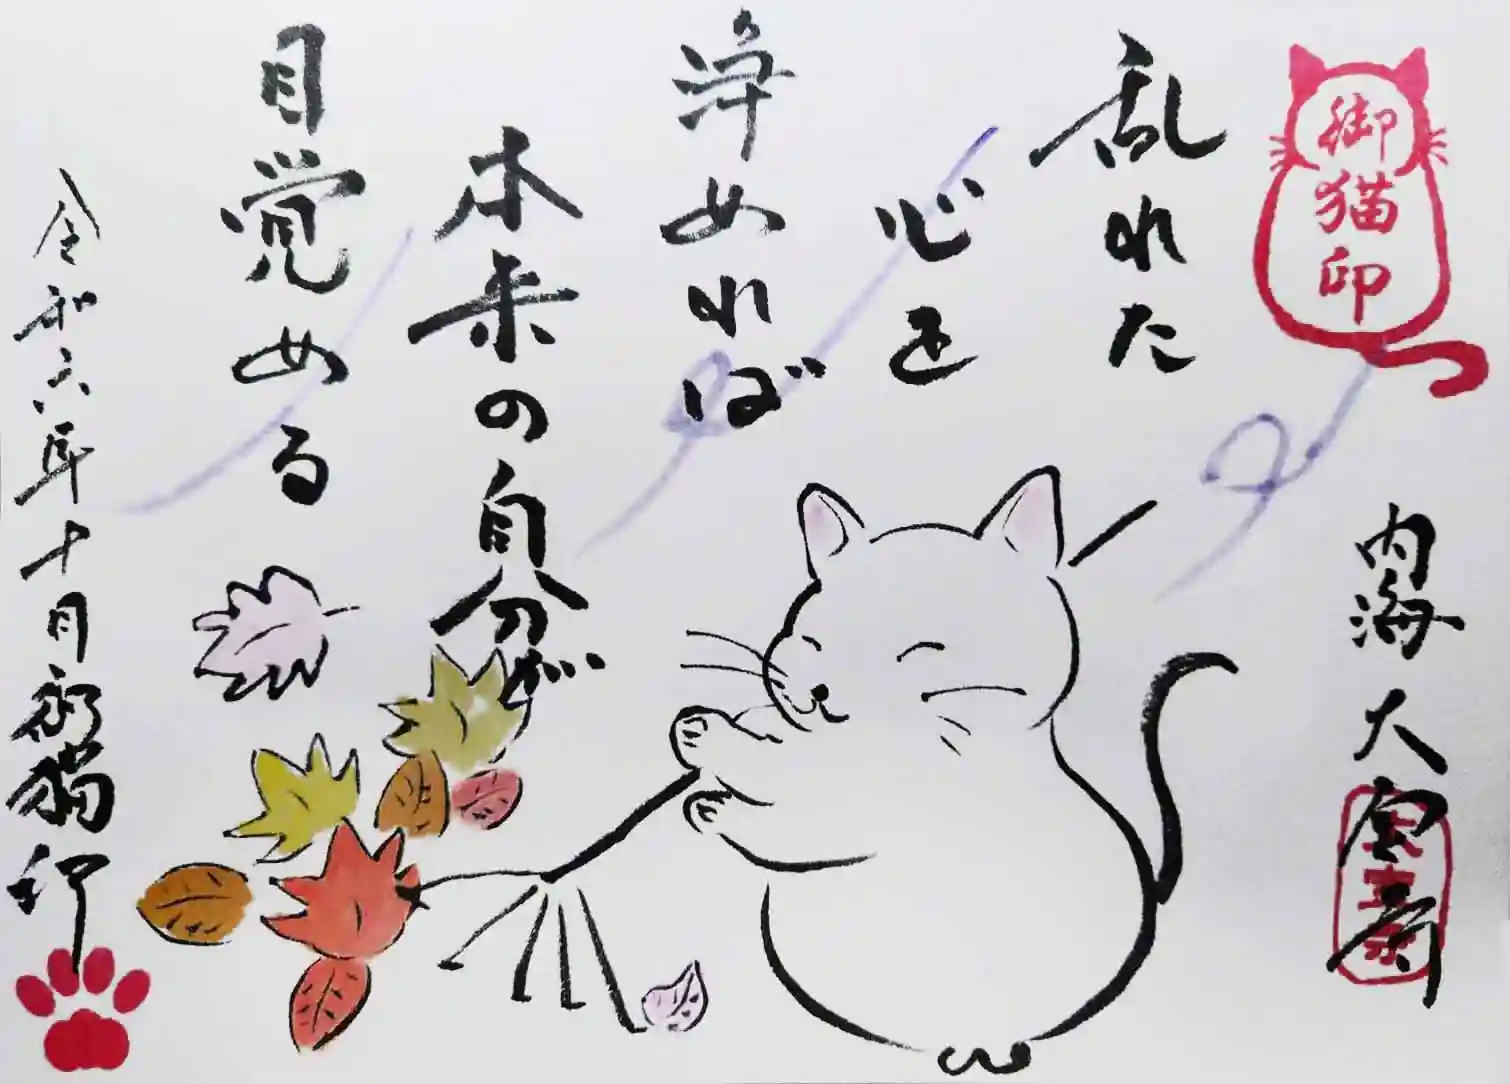 御猫印
乱れた
心を
浄めれば
本来の自分が
目覚める
内海
令和六年十月 御猫印